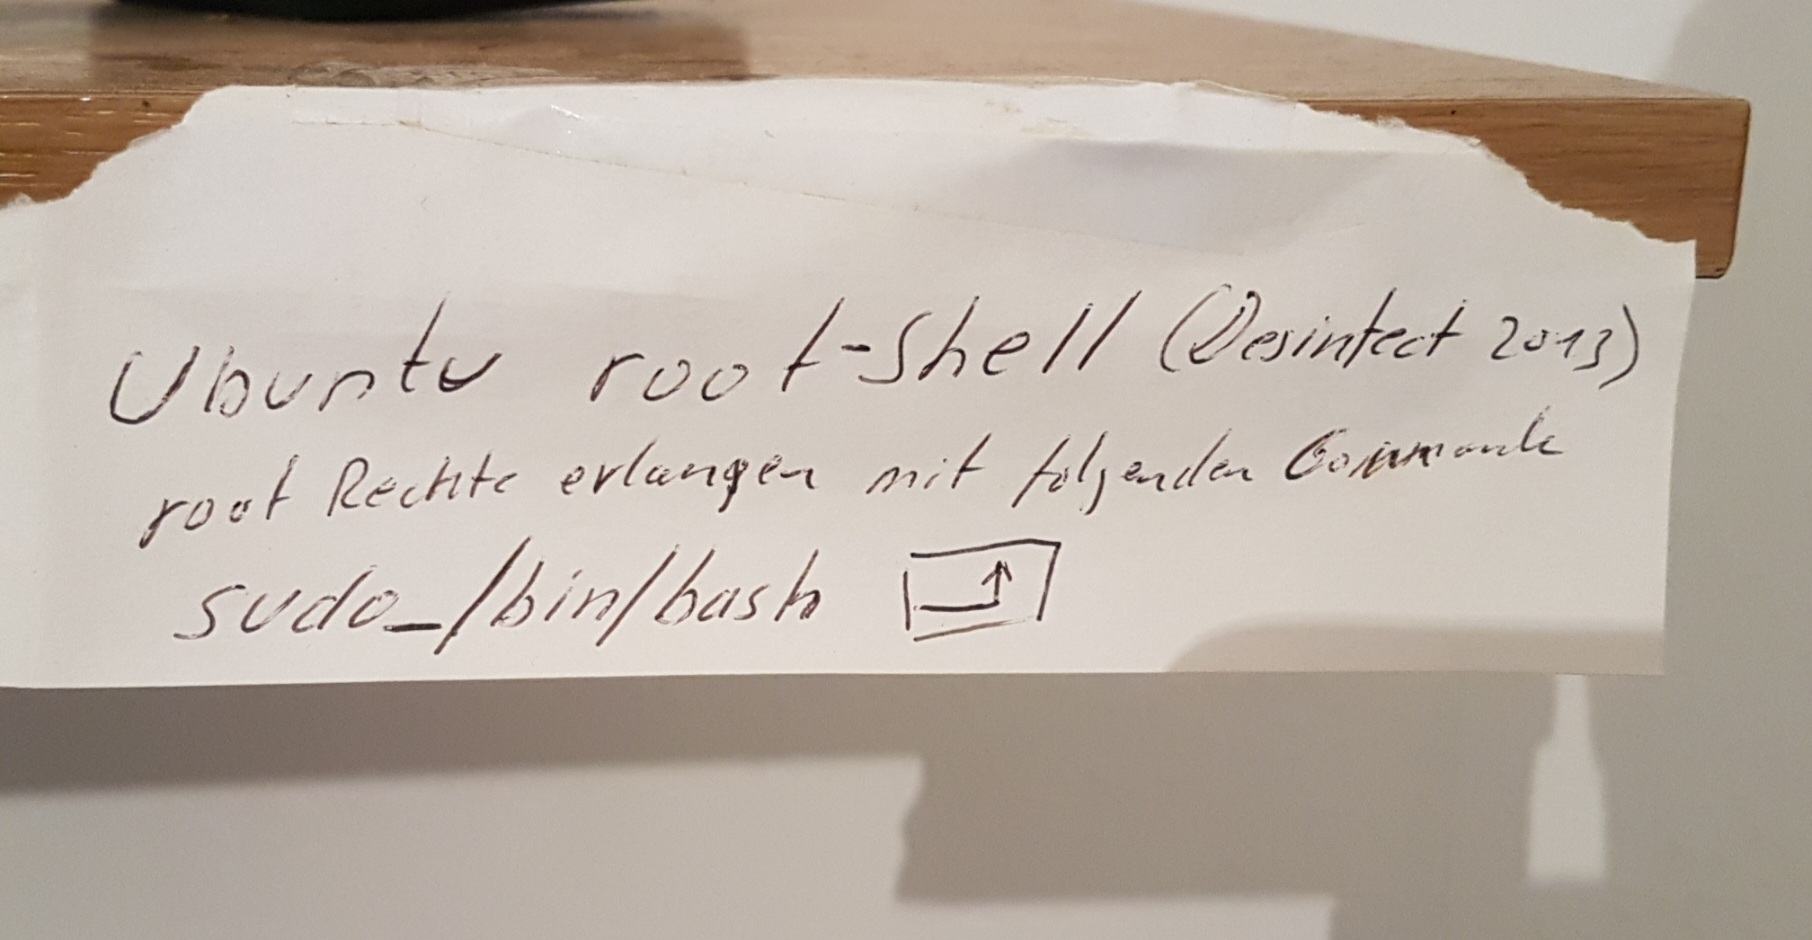 Ubuntu root-Shell (Desinfect 2013)
root Rechte erlangen mit folgenden Commando
sudo_/bin/bash